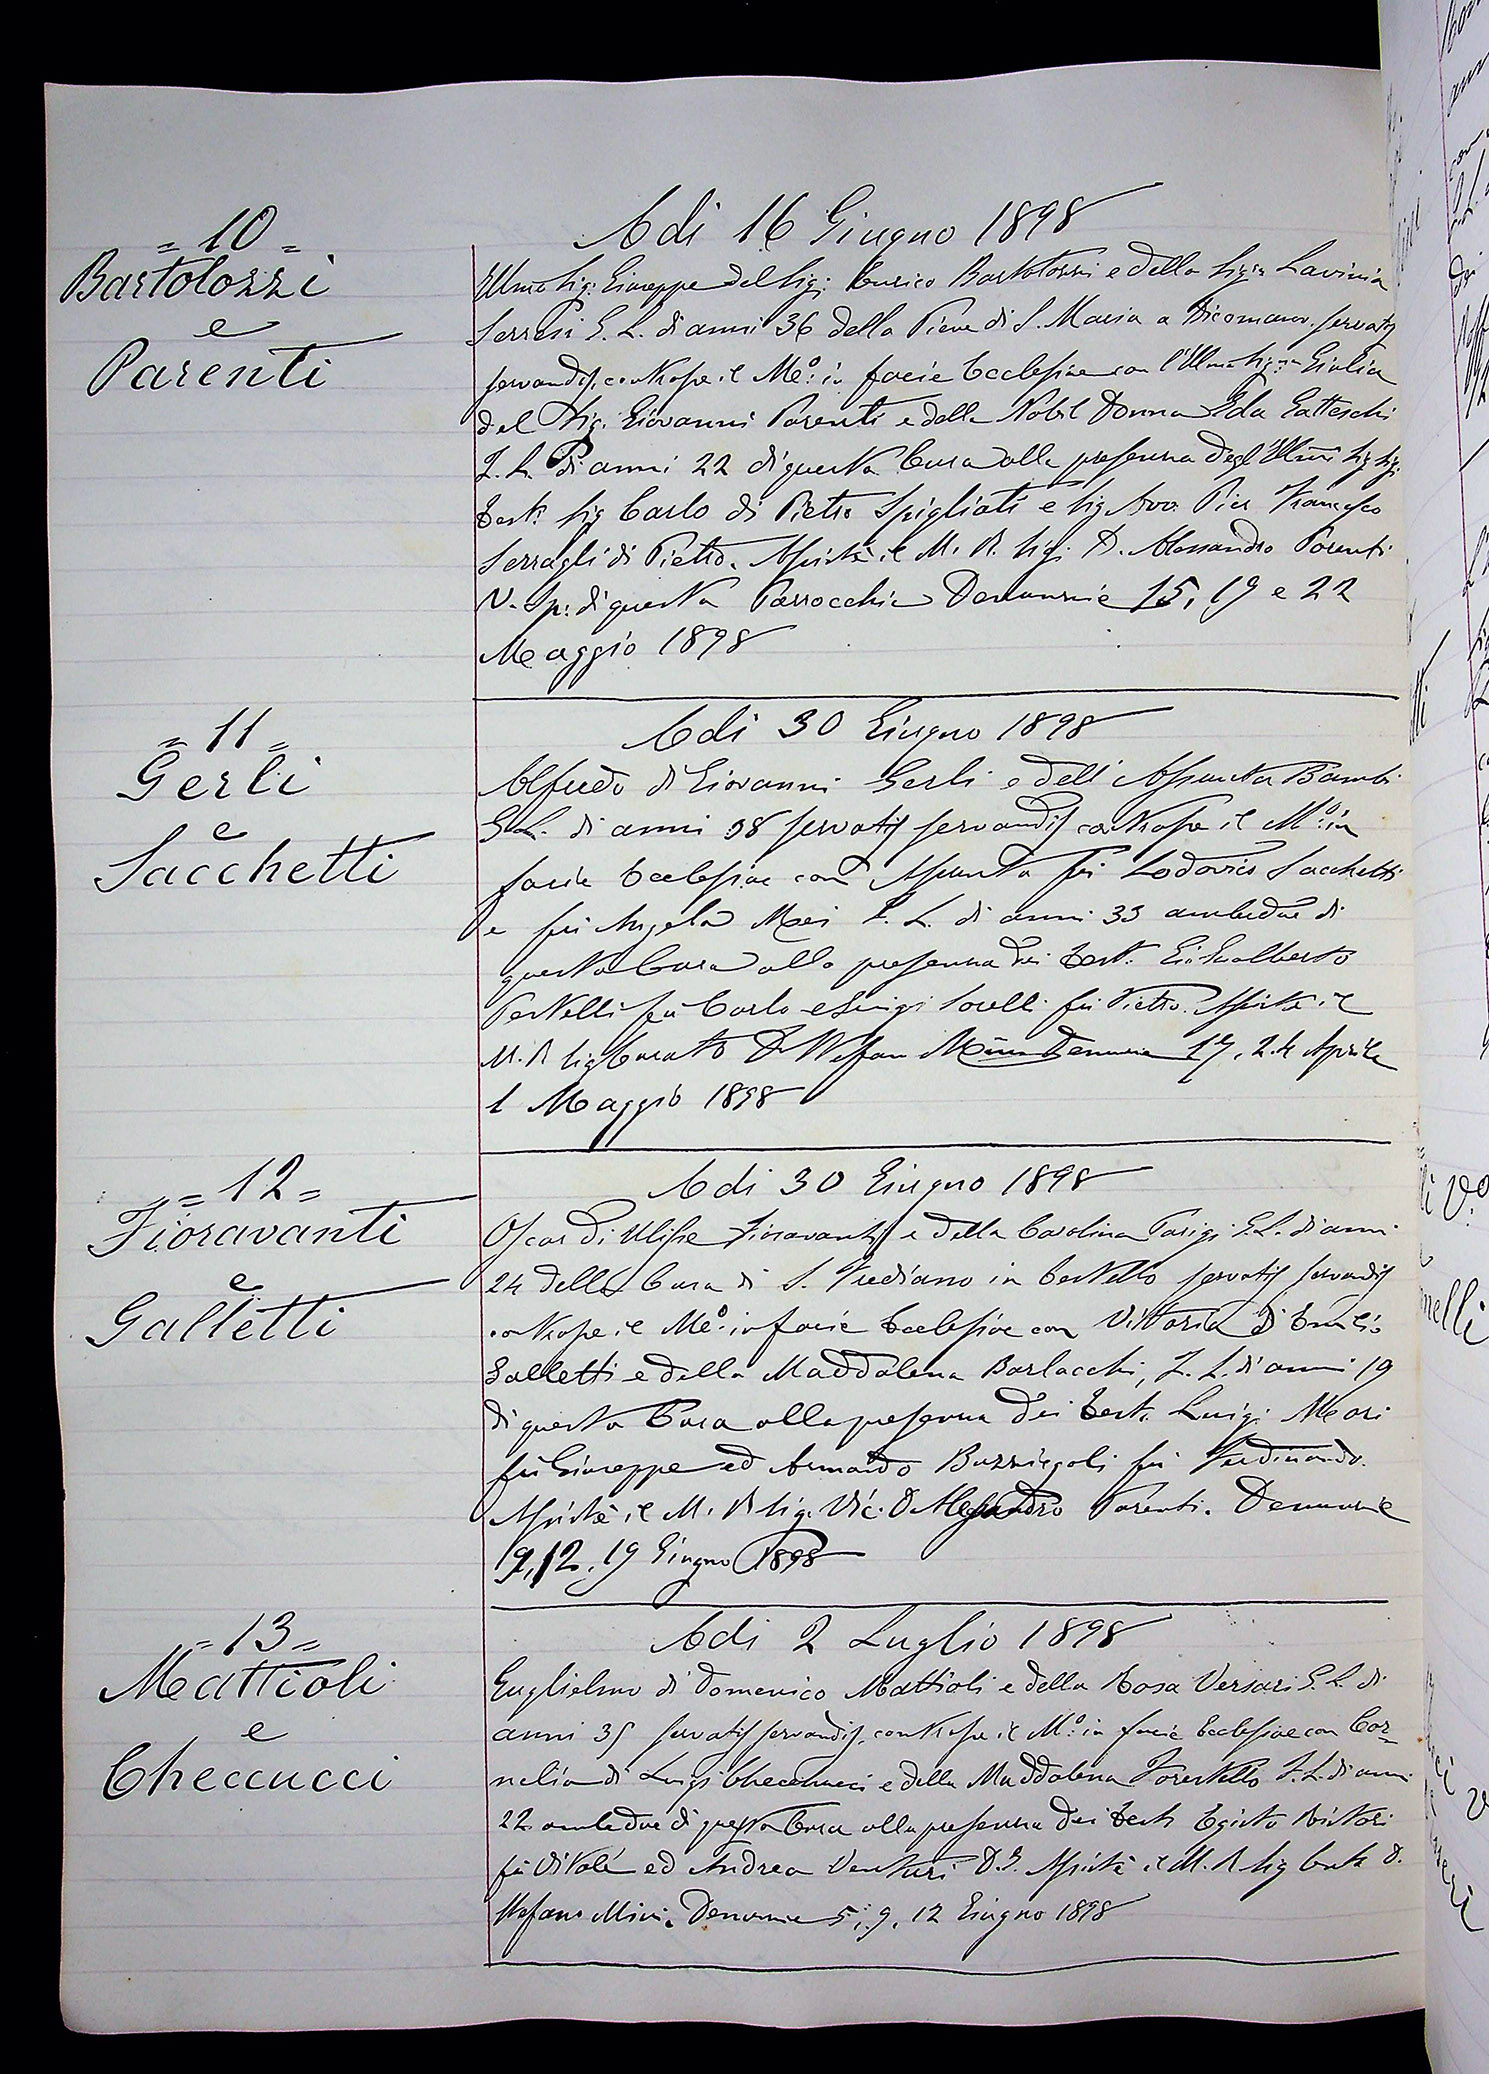 = 10 =
Bartolozzi
e
Parenti
Adi 16 Giugno 1898
Illmo Sig: Giuseppe del Sig: Enrico Bartolozzi e della Sigra Lavinia
Serresi G. L. di anni 36 della Pieve di S. Maria a Dicomano. servatis
servandis, contrasse il Mo: in facie Ecclesiae con l'Illma Sigra Giulia
del Sig. Giovanni Parenti e della Nobil Donna Ida Gatteschi
F. L. di anni 22 di questa Cura alla presenza degl'Illmi Sig Sigi
Test: Sig Carlo di Pietro Spigliati e Sig Avv. Pier Francesco
Serragli di Pietro. Assistè il M. R. Sig: D. Alessandro Parenti
V. Sp: di questa Parrocchia Denunzie 15, 19 e 22
Maggio 1898
= 11 =
Gerli
e
Sacchetti
Adi 30 Giugno 1898
Alfredo di Giovanni Gerli e dell'Assunta Bambi
G. L. di anni 38 servatis servandis contrasse il Mo: in
facie Ecclesiae con Assunta fu Lodovico Sacchetti
e fu Angela Mei F. L. di anni 33 ambedue di
questa Cura alla presenza dei Test. Gio Gualberto
fu Carlo e Luigi fu Pietro. Assistè il
M. R Sig Curato D Stefano Mini Denunzie 17, 24 Aprile
1 Maggio 1898
= 12 =
Fioravanti
e
Galletti
Adi 30 Giugno 1898
Oscar di Ulisse Fioravanti e della Carolina Parigi G. L. di anni
24 della Cura di S. Frediano in Cestello servatis servandis
contrasse il Mo: in facie Ecclesiae con Vittoria di Emilio
Galletti e della Maddalena Barlacchi, F. L. di anni 19
di questa Cura alla presenza dei Test. Luigi Meori
fu Giuseppe ed Armando Buzziegoli fu Ferdinando.
Assistè il M. R Sig. Vic. D Alessandro Parenti. Denunzie
9, 12, 19 Giugno 1898
= 13 =
Mattioli
e
Checcucci
Adi 2 Luglio 1898
Guglielmo di Domenico Mattioli e della Rosa Versari G. L. di
anni 35 servatis servandis, contrasse il Mo: in facie Ecclesiae con Cor=
nelia di Luigi Checcucci e della Maddalena F. L. di anni
22 ambedue di questa Cura alla presenza dei Test Egisto Ristori
fu Vitale ed Andrea Venturi D. G. Assistè il M. R Sig Curto D.
Stefano Mini. Denunzie 5, 9, 12 Giugno 1898